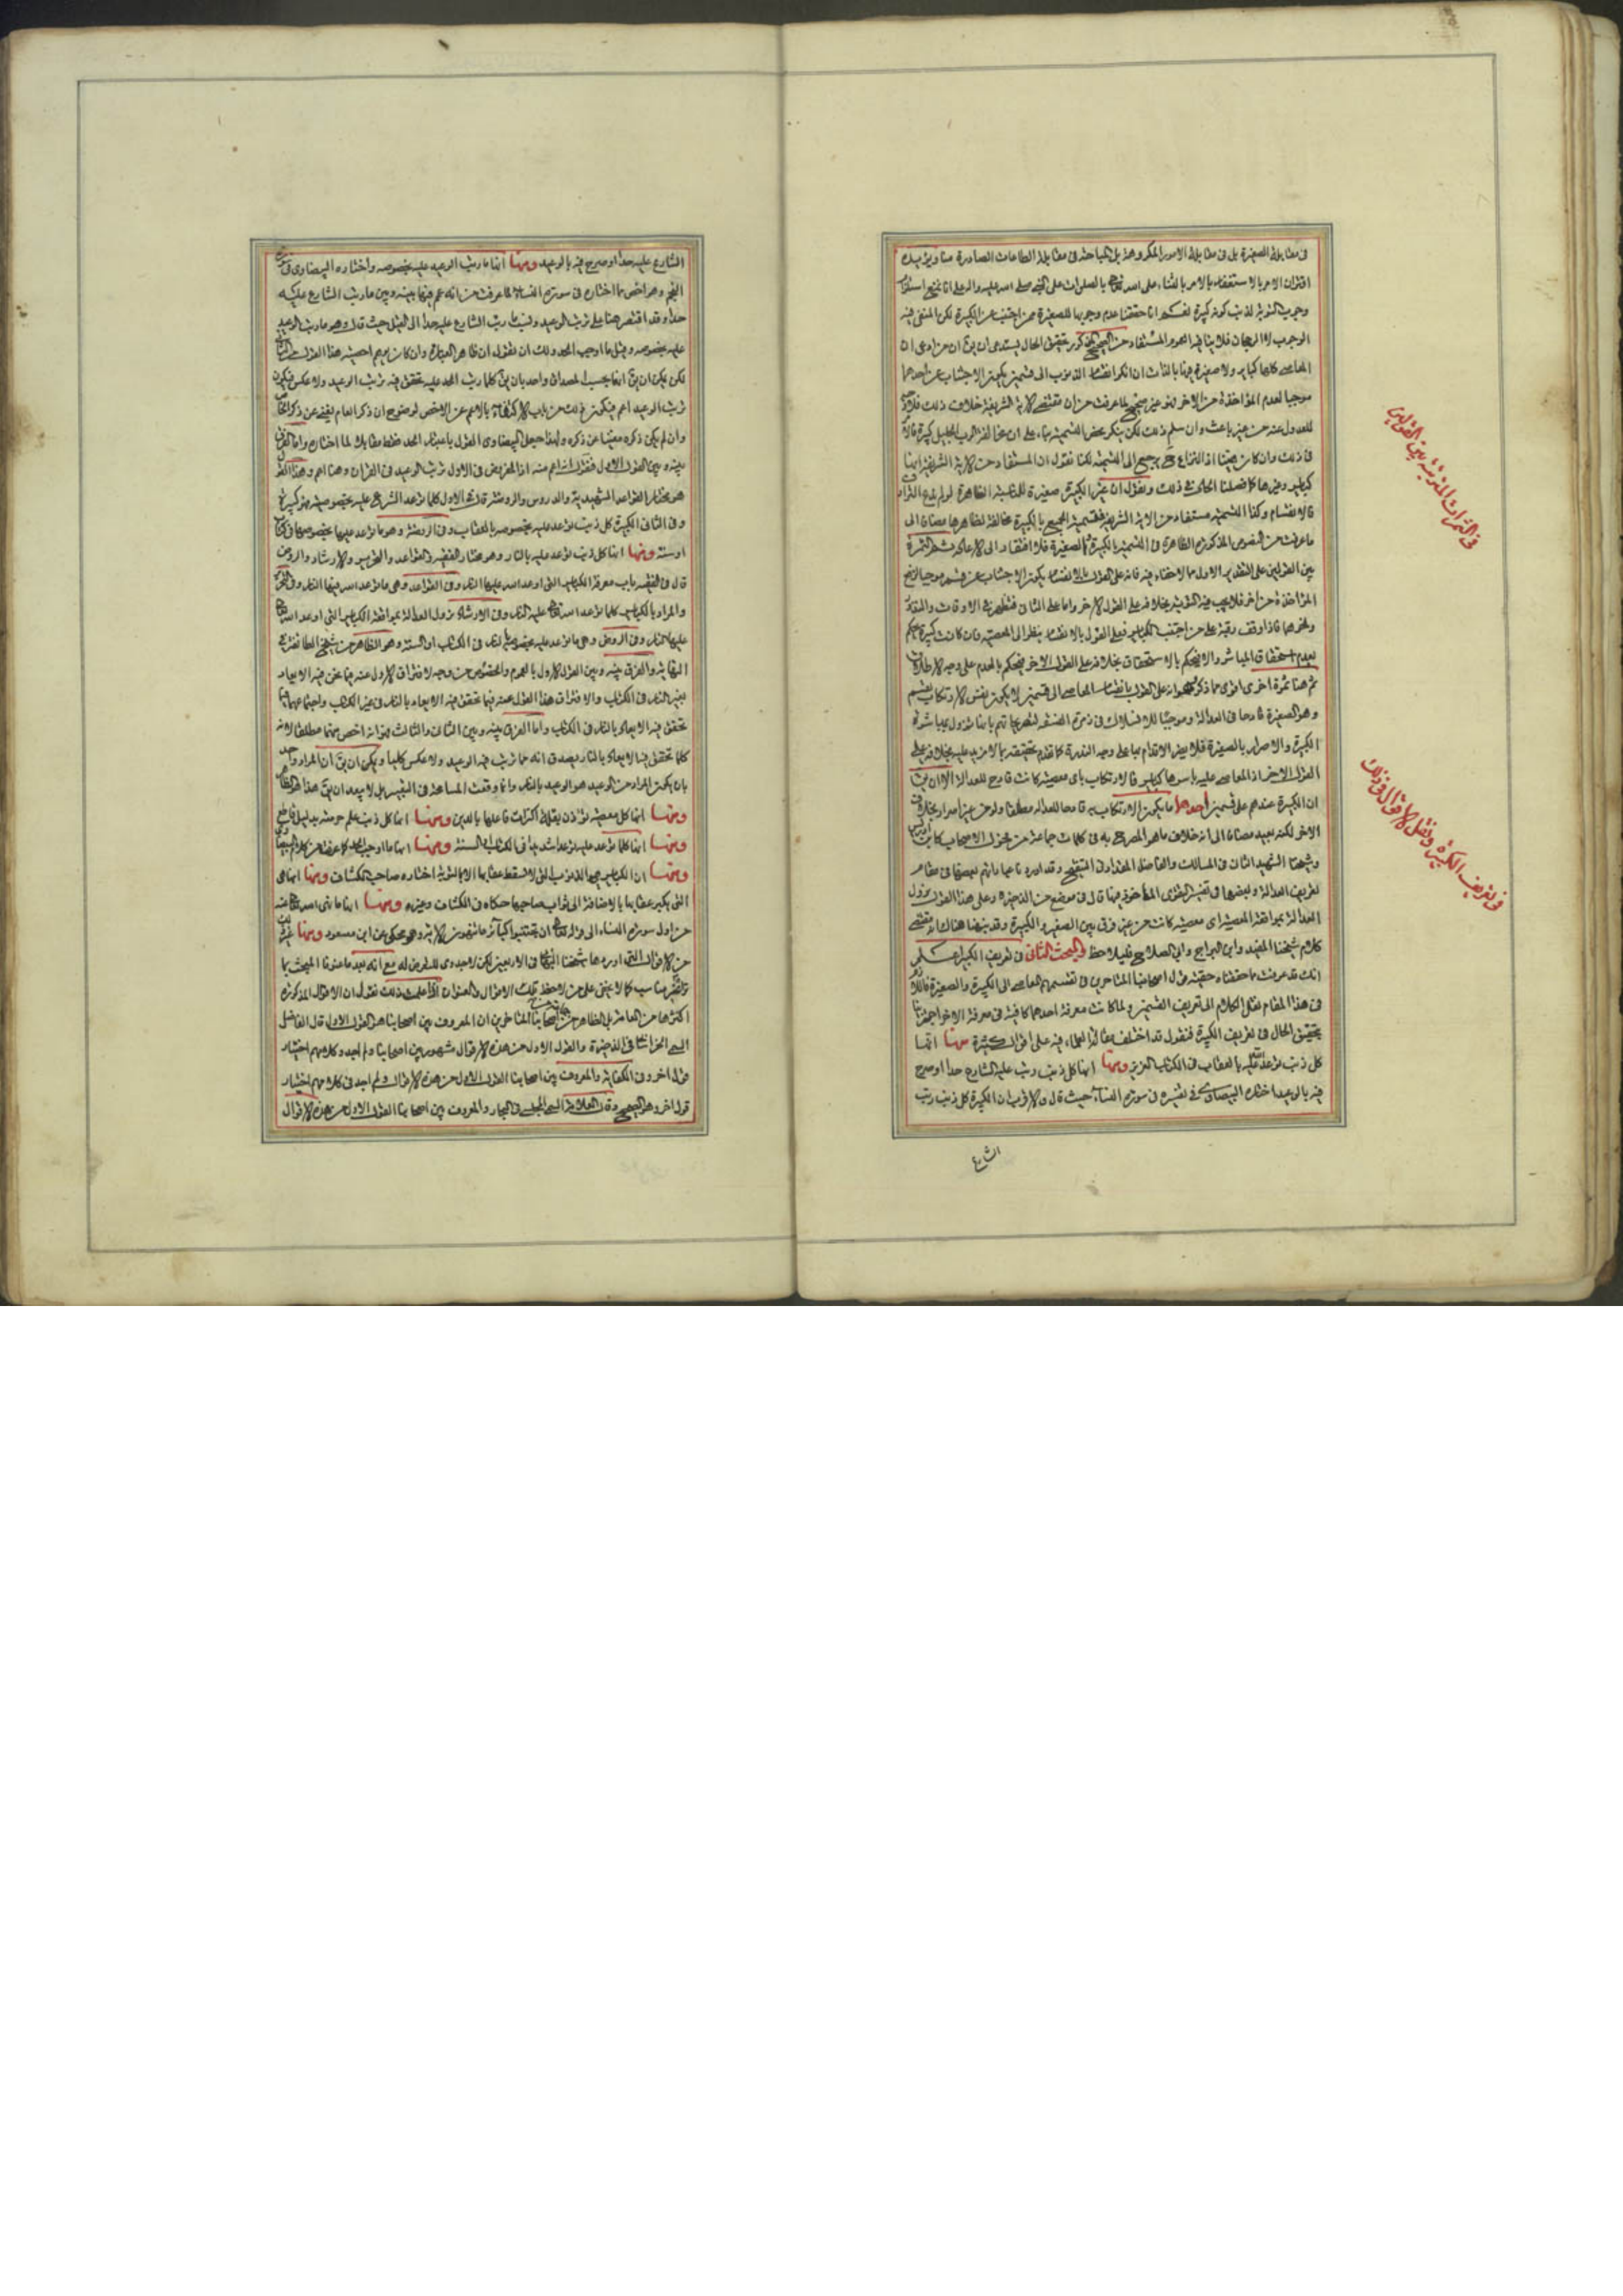 في مقابلة الصغيرة بل في مقابلة الامور المكروهة بل المباحة في مقابلة الطاعات الصادرة منا ويؤيده
اقتران الامر بالاستغفار بالامر بالثناء على الله تعالى بالصلوات على النبي صلى الله عليه واله على انا نمنع استلزام
وجوب التوبة لذنب كونه كبيرة كيف انا حققنا عدم وجوبها للصغيرة ممن اجتنب عن الكبيرة لكن المنفي فيه
الوجوب لا الرجحان فلا ينافيه العموم المستفاد من الصحيح المذكور تحقيق الحال يستدعي ان يق ان من ادعى ان
المعاصي كلها كبائر ولا صغيرة فيها بالذات ان انكر انقسام الذنوب الى قسمين يكون الاجتناب عن احدهما
موجبا لعدم المؤاخذة من الاخر فهو غير صحيح لما عرفت من ان مقتضى الاية الشريفة خلاف ذلك فلا وجه
للعدول عنه من غير باعث وان سلم ذلك لكن ينكر محض التسمية بناء على ان مخالفة الرب الجليل كبيرة
في ذلك وان كان هينا اذ النزاع ح يرجع الى التسمية لكنا نقول ان المستفاد من الاية الشريفة انها
كبائر وغيرها كما فصلنا الحال في ذلك ونقول ان غير الكبيرة صغيرة للمقابلة الظاهرة
فالانقسام وكذا التسمية مستفاد من الاية الشريفة فتسمية الجميع بالكبيرة مخالفة لظاهرها مضافا الى
ما عرفت من النصوص المذكورة الظاهرة في التسمية بالكبيرة والصغيرة فلا افتقار الى الاعادة ثم الثمرة
بين القولين على التقدير الاول مما لا خفاء فيه فانه على القول بالانقسام يكون الاجتناب عن قسم موجبا لرفع
المؤاخذة من اخر فلا يجب فيه التوبة بخلافه على القول الاخر واما على الثاني فتظهر في الاوقات والنذور
ونحوهما فاذا وقف رقبة على من اجتنب الكبائر فعلى القول بالانقسام ينظر الى المعصية فان كانت كبيرة يحكم
بعدم استحقاق المباشر والا فيحكم بالاستحقاق بخلافه على القول الاخر فيحكم بالعدم على وجه الاطلاق
ثم هنا ثمرة اخرى اقوى مما ذكر وهي انه على القول بانقسام المعاصي الى قسمين لا يكون نفس الارتكاب بقسم
وهو الصغيرة قادحا في العدالة وموجبا للانسلاك في زمرة الفسقة لتصريحاتهم بانها تزول بمباشرة
الكبيرة والاصرار بالصغيرة فلا يضر الاقدام بها على وجه الندرة كما تقدم تحقيقه بما لا مزيد عليه بخلافه على
القول الاخر اذ المعاصي عليه باسرها كبائر فالارتكاب باي معصية كانت قادح للعدالة الا ان يق
ان الكبيرة عندهم على قسمين احدهما ما يكون الارتكاب به قادحا للعدالة مطلقا ولو من غير اصرار بخلاف
الاخر لكنه بعيد مضافا الى انه خلاف ما هو المصرح به في كلمات جماعة من فحول الاصحاب كابن ادريس
وشيخنا الشهيد الثاني في المسالك والفاضل المقداد في التنقيح وقد اوردنا عباراتهم بعضها في مقام
تعريف العدالة وبعضها في تفسير التقوى المأخوذ فيها قال في موضع من الذخيرة وعلى هذا القول يزول
العدالة بمواقعة المعصية اي معصية كانت من غير فرق بين الصغيرة والكبيرة وقد نبهنا هناك انه مقتضى
كلام شيخنا المفيد وابن البراج وابي الصلاح فليلاحظ والبحث الثاني في تعريف الكبيرة اعلم
انك قد عرفت ما حققناه حقيقة قول اصحابنا المتاخرين في تقسيمهم المعاصي الى الكبيرة والصغيرة فاللازم
في هذا المقام نقل الكلام الى تعريف القسمين ولما كانت معرفة احدهما كافية في معرفة الاخر
تحقيق الحال في تعريف الكبيرة فنقول قد اختلف مقالة العلماء فيه على اقوال كثيرة منها انها
كل ذنب توعد الله عليه بالعقاب في الكتاب العزيز ومنها انها كل ذنب رتب عليه الشارع حدا او صرح
فيه بالوعيد اختاره البيضاوي في تفسيره في سورة النساء حيث قال والاقرب ان الكبيرة كل ذنب رتب
الشارع
في الثمرات المترتبة بين القولين
في تعريف الكبيرة ونقل الاقوال في ذلك
الشارع عليه حدا او صرح فيه بالوعيد ومنها انها ما رتب الوعيد عليه بخصوصه واختاره البيضاوي في سورة
النجم وهو اخص مما اختاره في سورة النساء لما عرفت من انه عمم فيها بينه وبين ما رتب الشارع عليه
حدا وقد اقتصر هنا على ترتب الوعيد ونسب ما رتب الشارع عليه حدا الى القيل حيث قال وهو ما رتب الوعيد
عليه بخصوصه وقيل ما اوجب الحد ولك ان تقول ان ظاهر العبارة وان كان يوهم اخصية هذا القول من الثاني
لكن يمكن ان يق انها بحسب المصداق واحد بان يق كلما رتب الحد عليه تحقق فيه ترتب الوعيد ولا عكس فيكون
ترتب الوعيد اعم فيكون ذلك من باب الاكتفاء بالاعم عن الاخص لوضوح ان ذكر العام يغني عن ذكر الخاص
وان لم يكن ذكره مغنيا عن ذكره ولهذا جعل البيضاوي القول باعتبار الحد فقط مقابلا لما اختاره واما الفرق
بينه وبين القول الاول فنقول انه اعم منه اذ المفروض في الاول ترتب الوعيد في القران وهنا اعم وهذا القول
هو مختار القواعد الشهيدية والدروس والروضة قال في الاول كلما توعد الشرع عليه بخصوصيته فهو كبيرة
وفي الثاني الكبيرة كل ذنب توعد عليه بخصوصه بالعقاب وفي الروضة وهو ما توعد عليها بخصوصها في كتاب
او سنة ومنها انها كل ذنب توعد عليه بالنار وهو مختار الفقيه والقواعد والتحرير والارشاد والروض
قال في الفقيه باب معرفة الكبائر التي اوعد الله عليها النار وفي القواعد وهي ما توعد الله فيها النار وفي التحرير
والمراد بالكبائر كلما توعد الله تعالى عليه النار وفي الارشاد تزول العدالة بمواقعة الكبائر التي اوعد الله تعالى
عليها النار وفي الروض وهي ما توعد عليه بخصوصه بالنار في الكتاب او السنة وهو الظاهر من شيخ الطائفة في
النهاية والفرق بينه وبين القول الاول بالعموم والخصوص من وجه لافتراق الاول عنه فيما تحقق فيه الايعاد
بغير النار في الكتاب والافتراق هذا القول عنه فيما تحقق فيه الايعاد بالنار في غير الكتاب واجتماعهما فيما
تحقق فيه الايعاد بالنار في الكتاب واما الفرق بينه وبين الثاني والثالث فهو انه اخص منهما مطلقا لانه
كلما تحقق فيه الايعاد بالنار يصدق انه مما رتب فيه الوعيد ولا عكس كليا ويمكن ان يق ان المراد واحد
بان يكون المراد من الوعيد هو الوعيد بالنار وانما وقعت المسامحة في التعبير بل لا يبعد ان يق هذا هو الظاهر
ومنها انها كل معصية تؤذن بقلة اكتراث فاعلها بالدين ومنها انها كل ذنب علم حرمته بدليل قاطع
ومنها انها كلما توعد عليه توعدا شديدا في الكتاب او السنة ومنها انها ما اوجب الحد كما عرفت من كلام البيضاوي
ومنها ان الكبائر هي الذنوب التي لا يسقط عقابها الا بالتوبة اختاره صاحب الكشاف ومنها انها هي
التي يكبر عقابها بالاضافة الى ثواب صاحبها حكاه في الكشاف وغيره ومنها انها ما نهى الله تعالى عنه
من اول سورة النساء الى قوله تعالى ان تجتنبوا كبائر ما تنهون الاية وهو محكي عن ابن مسعود ومنها غير ذلك
من الاقوال التي اوردها شيخنا البهائي في الاربعين لكن لا جدوى للتعرض له مع انه بعيد ما عنونا المبحث بما
يناسب كما لا يخفى على من لاحظ تلك الاقوال والعنوان اذا علمت ذلك نقول ان الاقوال المذكورة
اكثرها من العامة بل الظاهر من اصحابنا المتاخرين ان المعروف بين اصحابنا هو القول الاول قال الفاضل
السمي الخراساني في الذخيرة والقول الاول من هذه الاقوال مشهور بين اصحابنا ولم اجد في كلامهم اختيار
قول اخر وفي الكفاية والمعروف بين اصحابنا القول الاول من هذه الاقوال ولم اجد في كلامهم اختيار
قول اخر وهو الصحيح وقال العلامة السمي المجلسي في البحار والمعروف بين اصحابنا القول الاول من هذه الاقوال